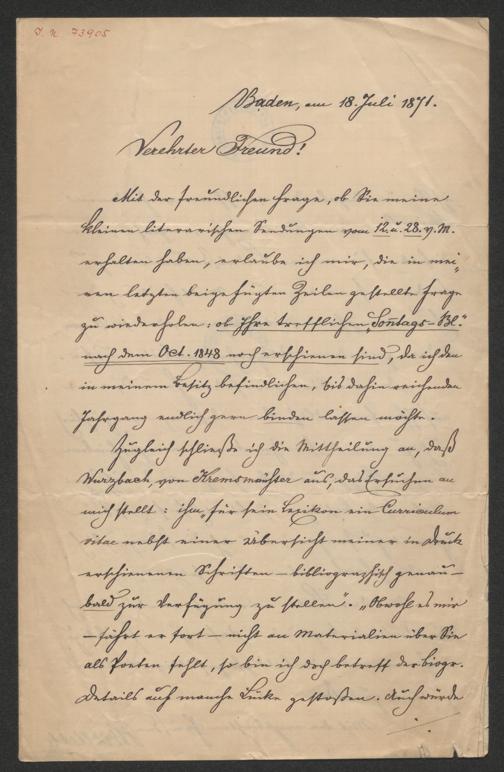 J. N. 73905
Baden, am 18. Juli 1871.
Verehrter Freund!
Mit der freundlichen Frage, ob Sie meine
kleinen literarischen Sendungen vom 12. u. 28. v. M.
erhalten haben, erlaube ich mir, die in mei„
nen letzten beigefügten Zeilen gestellte Frage
zu wiederholen: ob Ihre trefflichen „Sontags-Bl."
nach dem Oct. 1848 noch erschienen sind, da ich den
in meinem Besitz befindlichen, bis dahin reichenden
Jahrgang endlich gern binden lassen möchte.
Zugleich schließe ich die Mittheilung an, daß
Wurzbach, von Kremsmünster aus, das Ersuchen an
mich stellt: ihm „für sein Lexikon ein Curriculum
vitae nebst einer Übersicht meiner in Druck
erschienenen Schriften – bibliographisch genau –
bald zur Verfügung zu stellen". „Obwohl es mir
– fährt er fort – nicht an Materialien über Sie
als Poeten fehlt, so bin ich doch betreff der biogr.
Details auf manche Lücke gestoßen. Auch würde